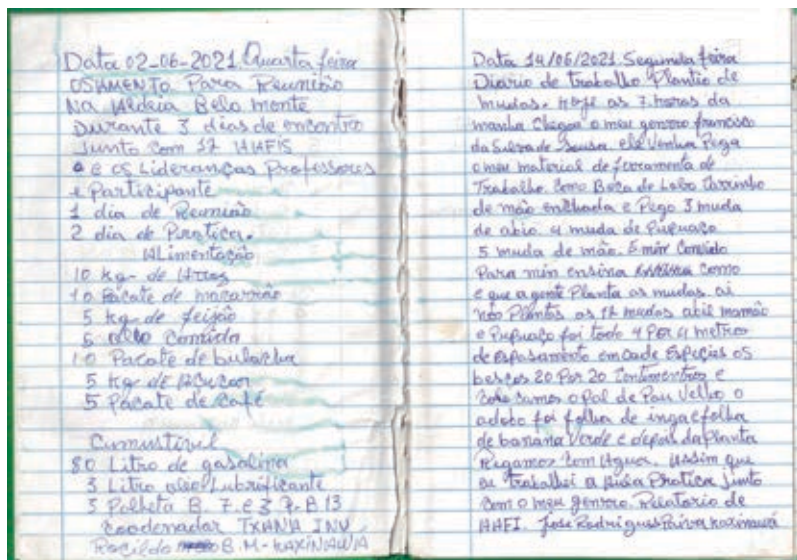 Data 02-06-2021. Quarta feira
OSAMENTO Para Reunião
NA Aldeia Belo monte
Durante 3 dias de encontro
Junto com 17 AAFIS
e os Lideranças Professores
e Participante
1 dia de Reunião
2 dia de Pratica.
ALimentação
10 kg- de Arroz
10 Pacate de macarrão
5 kg- de feijão
5 oleo Comida
10 Pacate de bulacha
5 kg- de Açucar
5 Pacate de café
Cumustivel
80 Litro de gasolina
3 Litro oleo Lubrificante
5 Palheta B. 7. e 3 P. B 13
Coodenador TXANA INU
Rocildo B. M- KAXINAWA
Data 14/06/2021. Segunda feira
Diario de trabalho Plantio de
mudas. Hoje as 7. horas da
manha Chegou o meu genrro francisco
da Silva de Sousa. ele Venha Pega
o meu material de ferramenta de
Trabalho. Como Boca de Lobo Carrinho
de mão enchada e Pego 3 muda
de abio. 4 muda de Cupuaço
5 muda de mão. E min Convido
Para min ensina como
e que a gente Planta as mudas. ai
nós Plantos as 12 mudas abil mamão
e Cupuaço foi todo 4 Por 4 metros
de espasamento em cade Especias os
bescos 20 Por 20 Centimentros e
Colocamos o Pal de Pau Velho o
adobo foi folha de inga e folha
de banana Verde e depois da Planta
Regamos Com Agua. Assim que
eu Trabalhei a Aula Pratica Junto
Com o meu genrro. Relatorio de
AAFI. Jose Rodrigues Paiva Kaxinawá